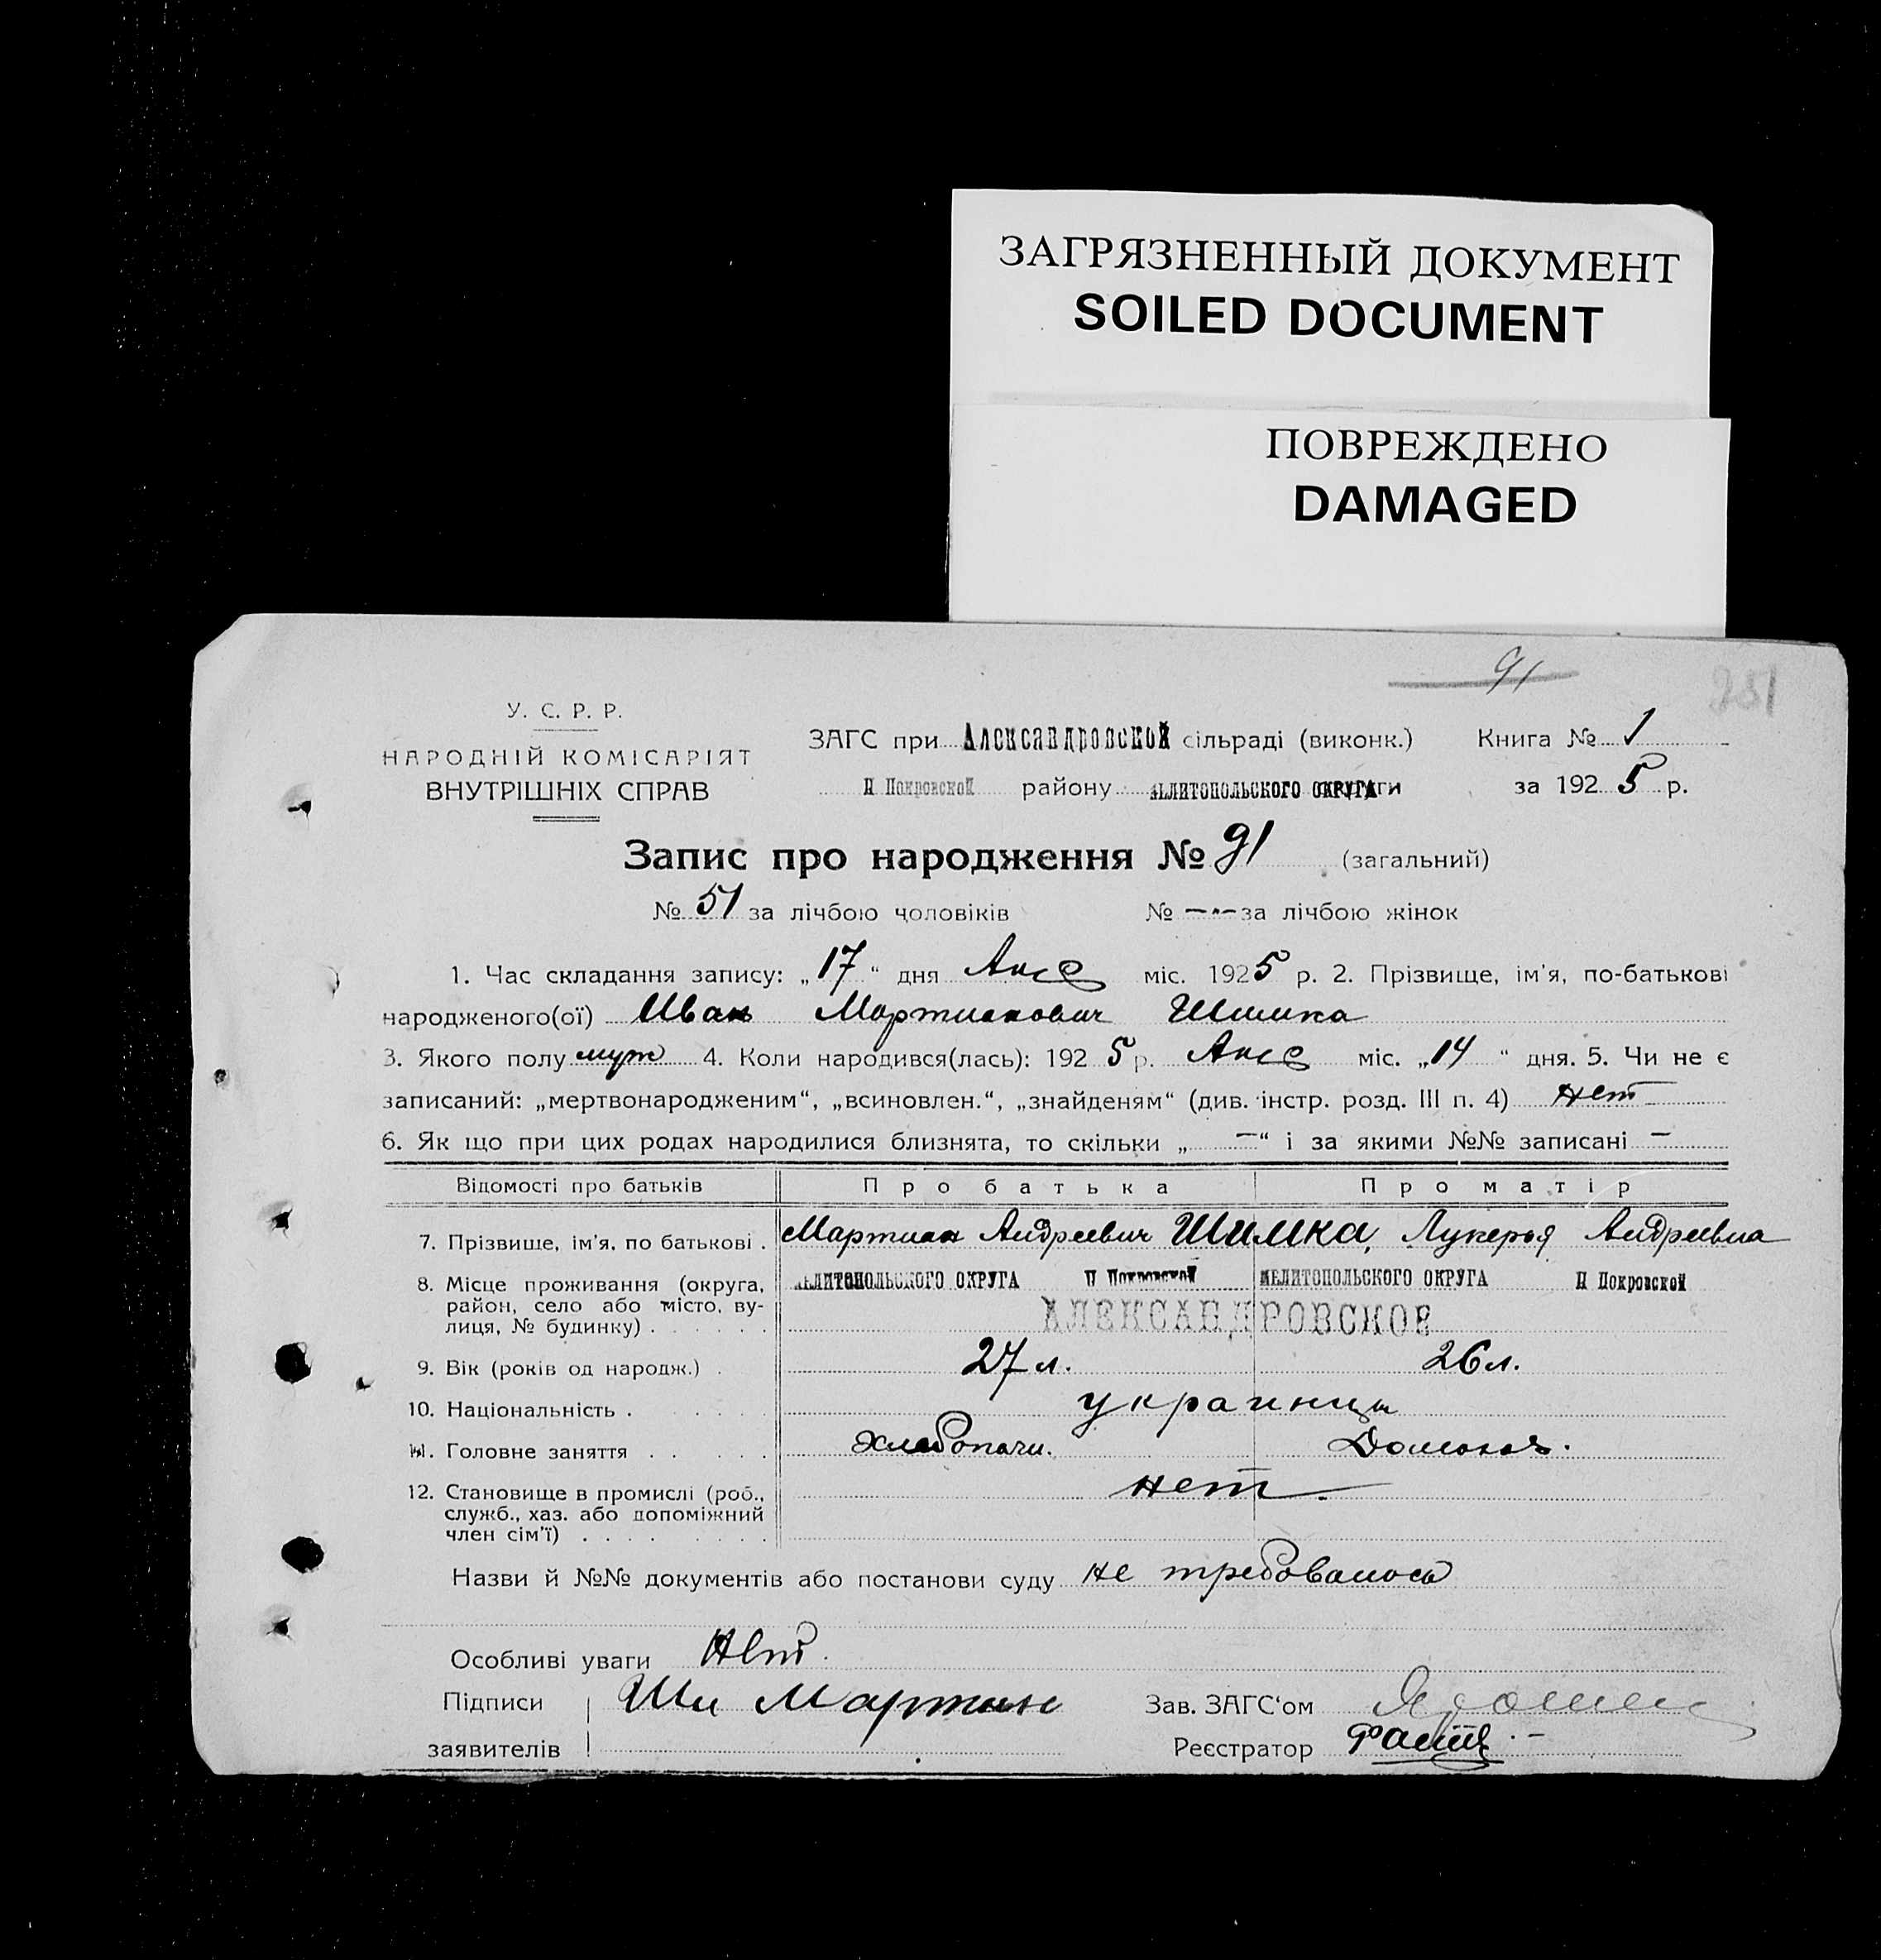 ЗАГРЯЗНЕННЫЙ ДОКУМЕНТ
SOILED DOCUMENT
ПОВРЕЖДЕНО
DAMAGED
91
251
У. С. Р. Р.
НАРОДНІЙ КОМІСАРІЯТ
ВНУТРІШНІХ СПРАВ
ЗАГС при Александровской сільраді (виконк.) Книга № 1
П Покровской району МЕЛИТОПОЛЬСКОГО ОКРУГА за 1925 р.
Запис про народження № 91 (загальний)
№ 51 за лічбою чоловіків № — за лічбою жінок
1. Час складання запису: „17“ дня міс. 1925 р. 2. Прізвище, ім'я, по-батькові
народженого(ої) Иван Мартианович Шимка
3. Якого полу муж 4. Коли народився(лась): 1925 р. міс. „14“ дня. 5. Чи не є
записаний: „мертвонародженим“, „всиновлен.“, „знайденям“ (див. інстр. розд. III п. 4) нет
6. Як що при цих родах народилися близнята, то скільки „—“ і за якими №№ записані —
Відомості про батьків Про батька Про матір
7. Прізвище, ім'я, по батькові . Мартиан Андреевич Шимка, Лукерья Андреевна
8. Місце проживання (округа, район, село або місто, вулиця, № будинку) . МЕЛИТОПОЛЬСКОГО ОКРУГА П Покровской МЕЛИТОПОЛЬСКОГО ОКРУГА П Покровской
АЛЕКСАНДРОВСКОЕ
9. Вік (років од народж.) . 27 л. 26 л.
10. Національність . украинцы
11. Головне заняття . Хлебопаш. Домохоз.
12. Становище в промислі (роб., служб., хаз. або допоміжний член сім'ї) . нет.
Назви й №№ документів або постанови суду не требовалось
Особливі уваги Нет.
Підписи Ши Мартин Зав. ЗАГС'ом
заявителів Реєстратор